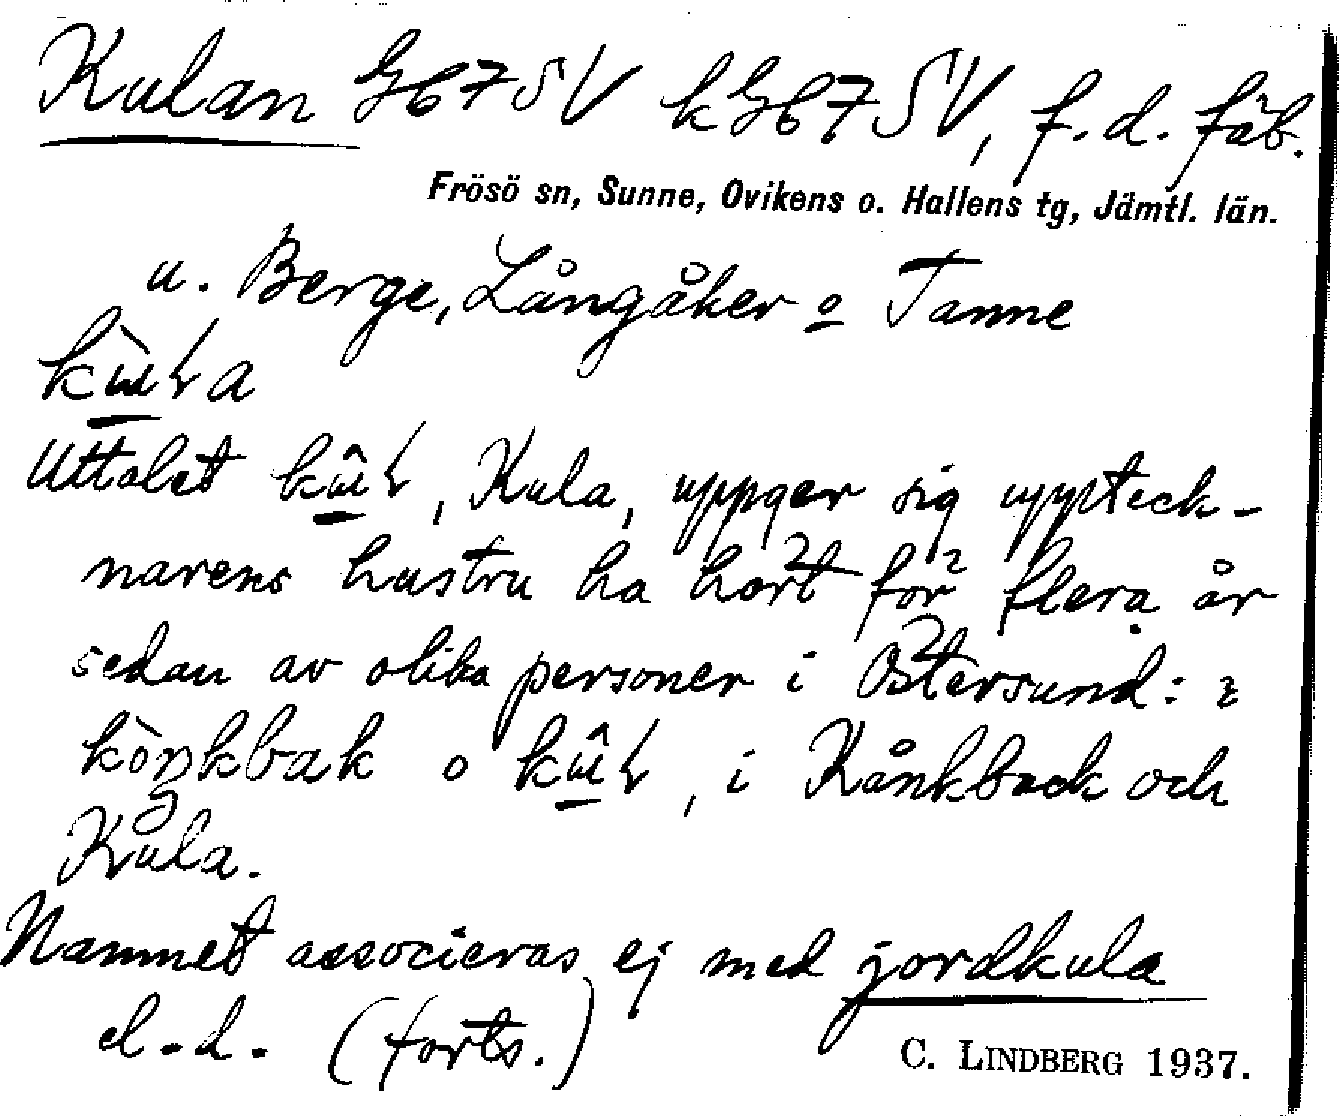 Kulan Gb7SV kGb7SV, f.d. fäb.
Frösö sn, Sunne, Ovikens o. Hallens tg, Jämtl. län.
u. Berge, Långåker o Tanne
Uttalet, Kula, uppger sig uppteck-
narens hustru ha hört för flera år
sedan av olika personer i Östersund: i
o, i Kånkback och
Kula.
Namnet associeras ej med jordkula
el.d. (forts.)
C. LINDBERG 1937.